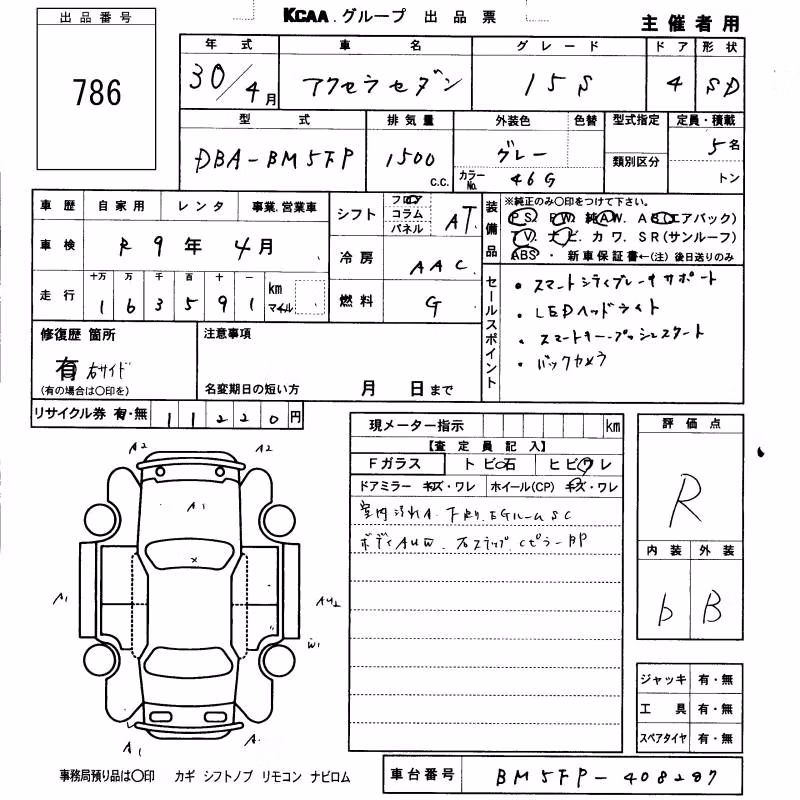 KCAA.グループ 出品票
主催者用
出品番号
786
年式 車名 グレード ドア 形状
30/4月 アクセラセダン 15S 4 SD
型式 排気量 外装色 色替 型式指定 定員・積載
DBA-BM5FP 1500 c.c. グレー カラーNo. 46G 類別区分 5名 トン
車歴 自家用 レンタ 事業.営業車
車検 R9年 4月
走行 十万 万 千 百 十 一
1 6 3 5 9 1 km マイル
シフト フロア コラム パネル AT
冷房 AAC
燃料 G
装備品 ※純正のみ○印をつけて下さい。
P.S. P.W. 純A.W. A B(エアバック)
T V. ナ ビ. カ ワ. S R (サンルーフ)
ABS ・ 新車保証書←(注) 後日送りのみ
セールスポイント
・スマートシティブレーキサポート
・LEDヘッドライト
・スマートキー.プッシュスタート
・バックカメラ
修復歴 箇所
有 右サイド
(有の場合は○印を)
注意事項
名変期日の短い方 月 日まで
リサイクル券 有・無 1 1 2 2 0 円
現メーター指示 km
【査定員記入】
Fガラス トビ石 ヒビワレ
ドアミラー キズ・ワレ ホイール(CP) キズ・ワレ
室内汚れA. 下廻り.EGルームSC
ボディAUW. 右ステップ.Cピラー-BP
評価点
R
内装 外装
b B
A2 A2
A1
×
A1 AU2
W1
A1 A.
ジャッキ 有・無
工具 有・無
スペアタイヤ 有・無
事務局預り品は○印 カギ シフトノブ リモコン ナビロム
車台番号 BM5FP-408287